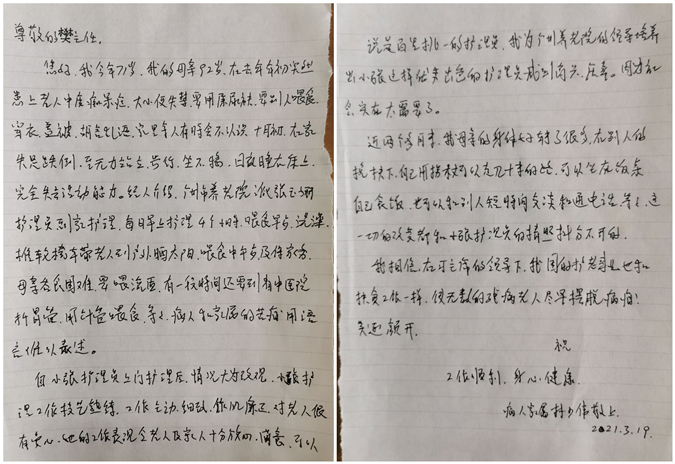 尊敬的樊主任:
您好,我今年71岁,我的母亲92岁,在去年年初突然
患上老人中度痴呆症,大小便失禁要用尿尿布,要别人喂食,
穿衣,盖被,胡言乱语,家里亲人有时会不认识,十月初,在家
失足跌倒,至无力站立,行,坐不稳,日夜睡在床上,
完全失去活动能力。经人介绍,广州市养老院派张
护理员到家护理,每日早上护理4个小时,喂食早点,洗澡,
推轮椅车带老人到户外晒太阳,喂食中午点及做家务,
母亲吞咽困难,要喂流质,有一段时间还要到市中医院
插胃管,用针管喂食,等等,病人和家属的苦痛用语
言难以表述。
但小张护理员上门护理后,情况大为改观,小张护
理工作技艺熟练,工作主动,细致,作风廉正,对老人很
有爱心,她的工作表现令老人及家人十分的满意,可以
说是百里挑一的护理员,我为广州养老院的领导培养
出小张这样优秀出色的护理员感到高兴,庆幸。因为社
会实在太需要了。
近两个月来,我母亲的身体好转了很多,在别人的
搀扶下,自己用拐杖可以走几十米的路,可以坐在饭桌
自己食饭,也可以和别人短时间交谈和通电话,等等,这
一切的改变都和小张护理员的精心照料分不开的。
我相信,在习主席的领导下,我国的护老事业也和
扶贫工作一样,使无数的残病老人尽早摆脱病痛,
笑逐颜开。
祝
工作顺利,身心健康。
病人家属 伟敬上
2021.3.19.